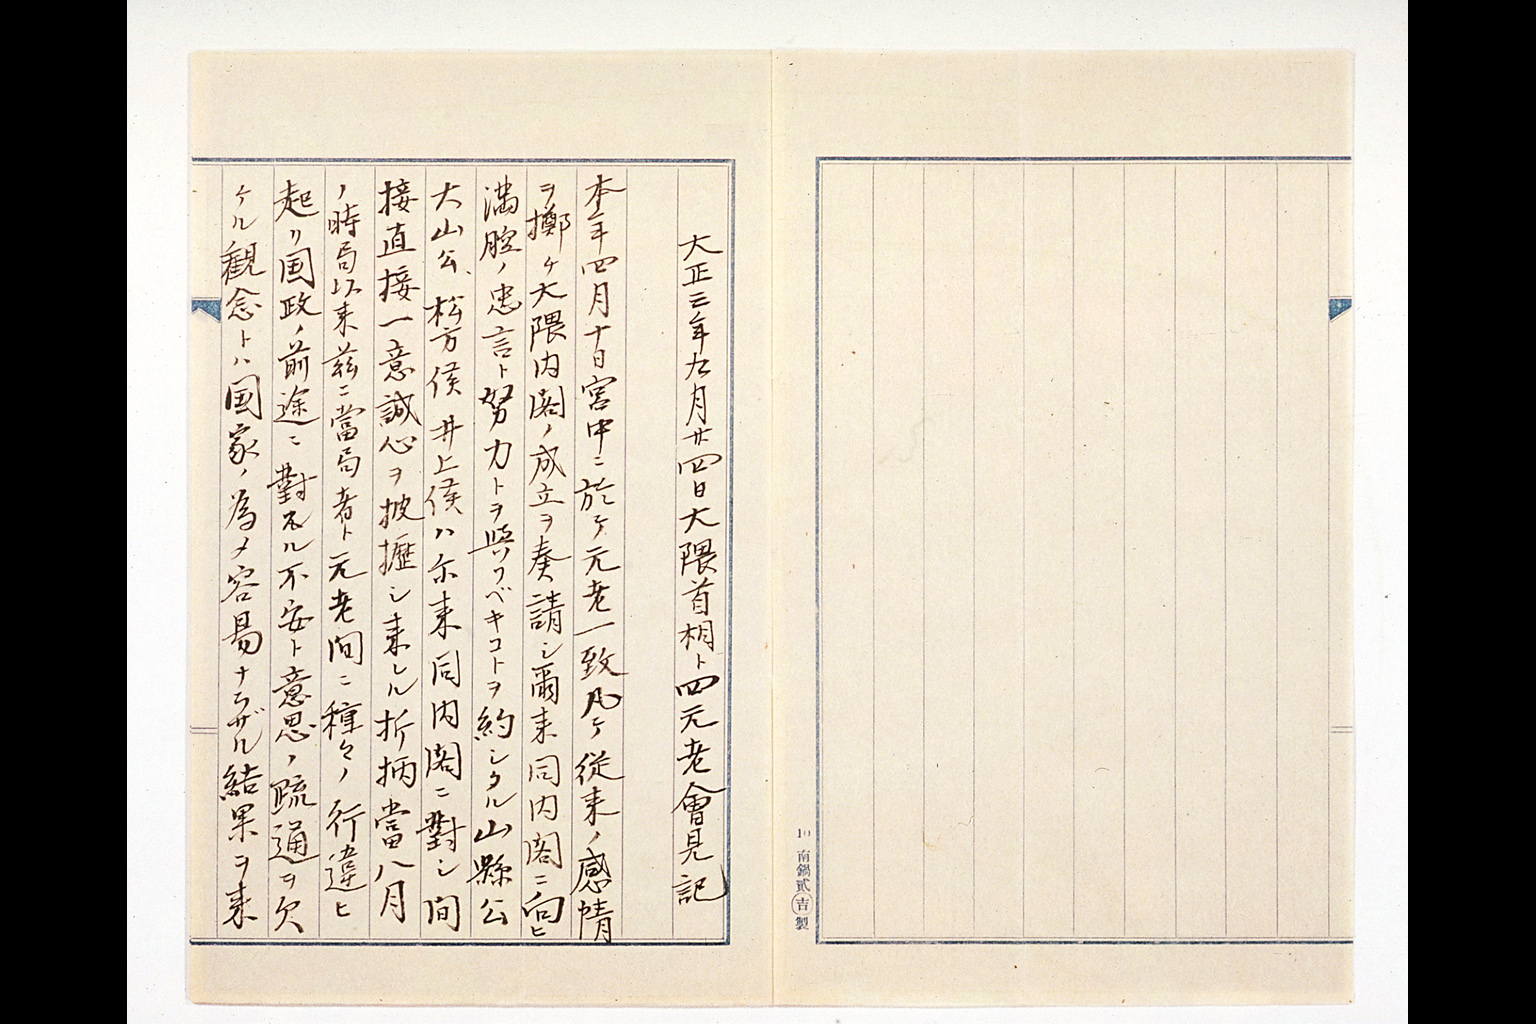 大正三年九月廿四日大隈首相ト四元老會見記
本年四月十日宮中ニ於ケ元老一致凡ケ従来ノ感情
ヲ擲ケ大隈内閣ノ成立ヲ奏請シ爾来同内閣ニ向ヒ
満腔ノ忠言ト努力トヲ與フベキコトヲ約シタル山縣公
大山公、松方侯井上侯ハ尓来同内閣ニ對シ間
接直接一意誠心ヲ披攊シ来レル折柄當八月
ノ時局以来茲ニ當局者ト元老間ニ種々ノ行違ヒ
起リ国政ノ前途ニ對スル不安ト意思ノ疏通ヲ欠
ケル観念トハ国家ノ為メ容易ナラザル結果ヲ来
10 南鍋貳吉製